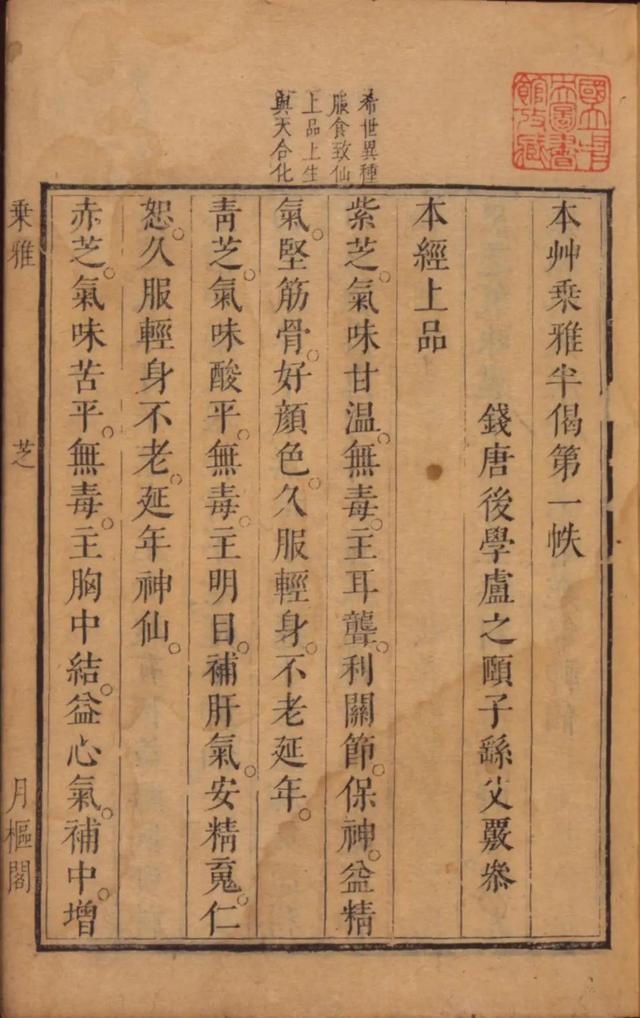 國立中
央圖書
館收藏
希世異種
服食致仙
上品上生
與天合化
本艸乗雅半偈第一帙
錢唐後學盧之頤子繇父覈叅
本經上品
紫芝。氣味甘温。無毒。主耳聾。利關節。保神。益精
氣。堅筋骨。好顏色。久服輕身。不老延年。
青芝。氣味酸平。無毒。主明目。補肝氣。安精䰟。仁
恕。久服輕身不老。延年神仙。
赤芝。氣味苦平。無毒。主胸中結。益心氣。補中。增
乗雅 芝 月樞閣